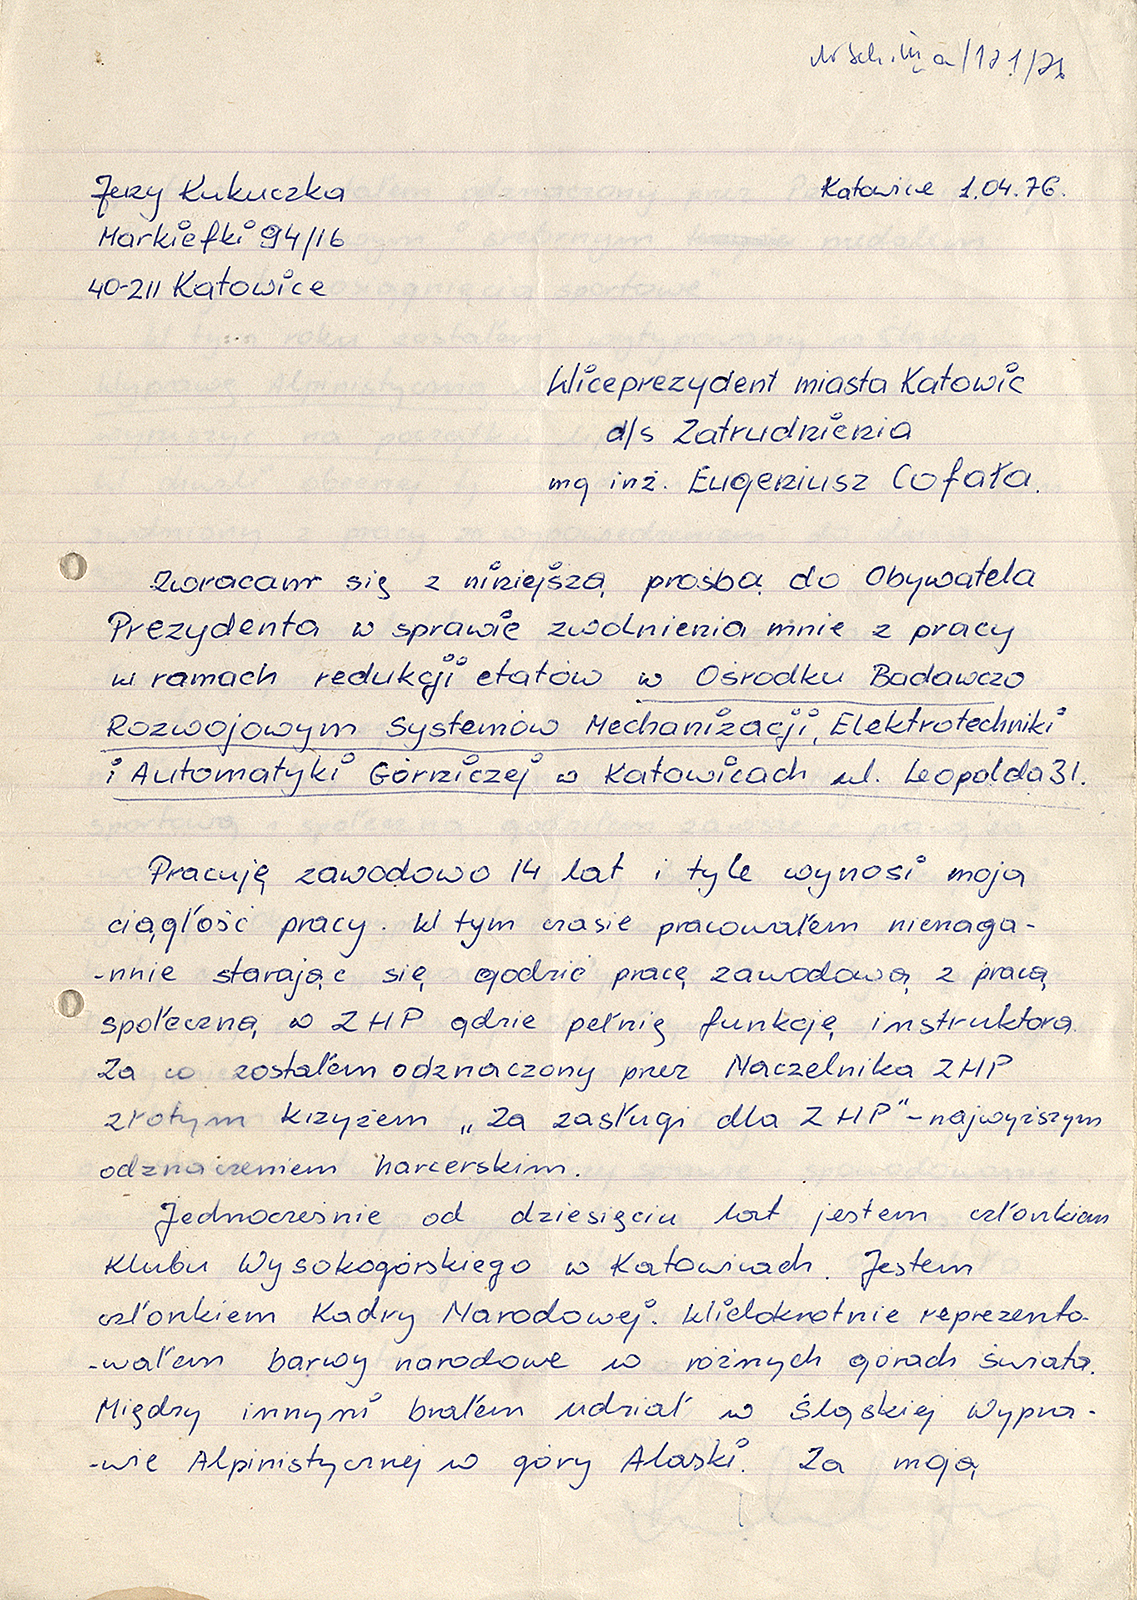 Jerzy Kukuczka
Katowice 1.04.76.
Markiefki 94/16
40-211 Katowice
Wiceprezydent miasta Katowic
d/s Zatrudnienia
mg inż. Eugeniusz Cofała.
Zwracam się z niniejszą prośbą do Obywatela
Prezydenta w sprawie zwolnienia mnie z pracy
w ramach redukcji etatów w Ośrodku Badawczo
Rozwojowym Systemów Mechanizacji, Elektrotechniki
i Automatyki Górniczej w Katowicach ul. Leopolda 31.
Pracuję zawodowo 14 lat i tyle wynosi moja
ciągłość pracy. W tym czasie pracowałem nienaga-
-nnie starając się godzić pracę zawodową z pracą
społeczną w ZHP gdzie pełnię funkcję instruktora.
Za co zostałem odznaczony przez Naczelnika ZHP
złotym krzyżem „Za zasługi dla ZHP" - najwyższym
odznaczeniem harcerskim.
Jednocześnie od dziesięciu lat jestem członkiem
Klubu Wysokogórskiego w Katowicach. Jestem
członkiem Kadry Narodowej. Wielokrotnie reprezento-
-wałem barwy narodowe w różnych górach świata.
Między innymi brałem udział w Śląskiej Wypra-
-wie Alpinistycznej w góry Alaski. Za moją